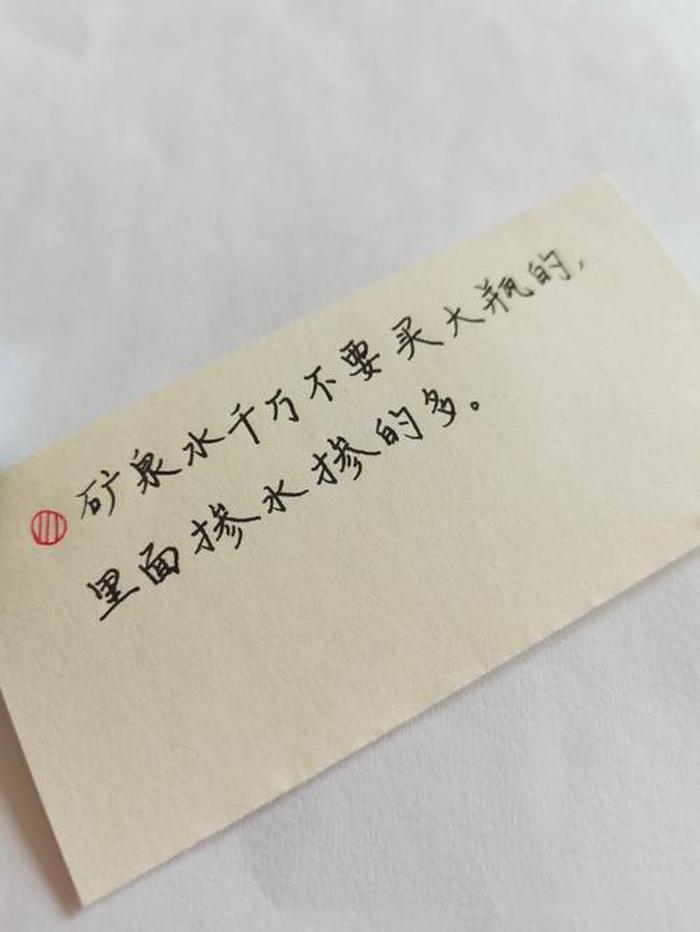 矿泉水千万不要买大瓶的,
里面掺水掺的多。